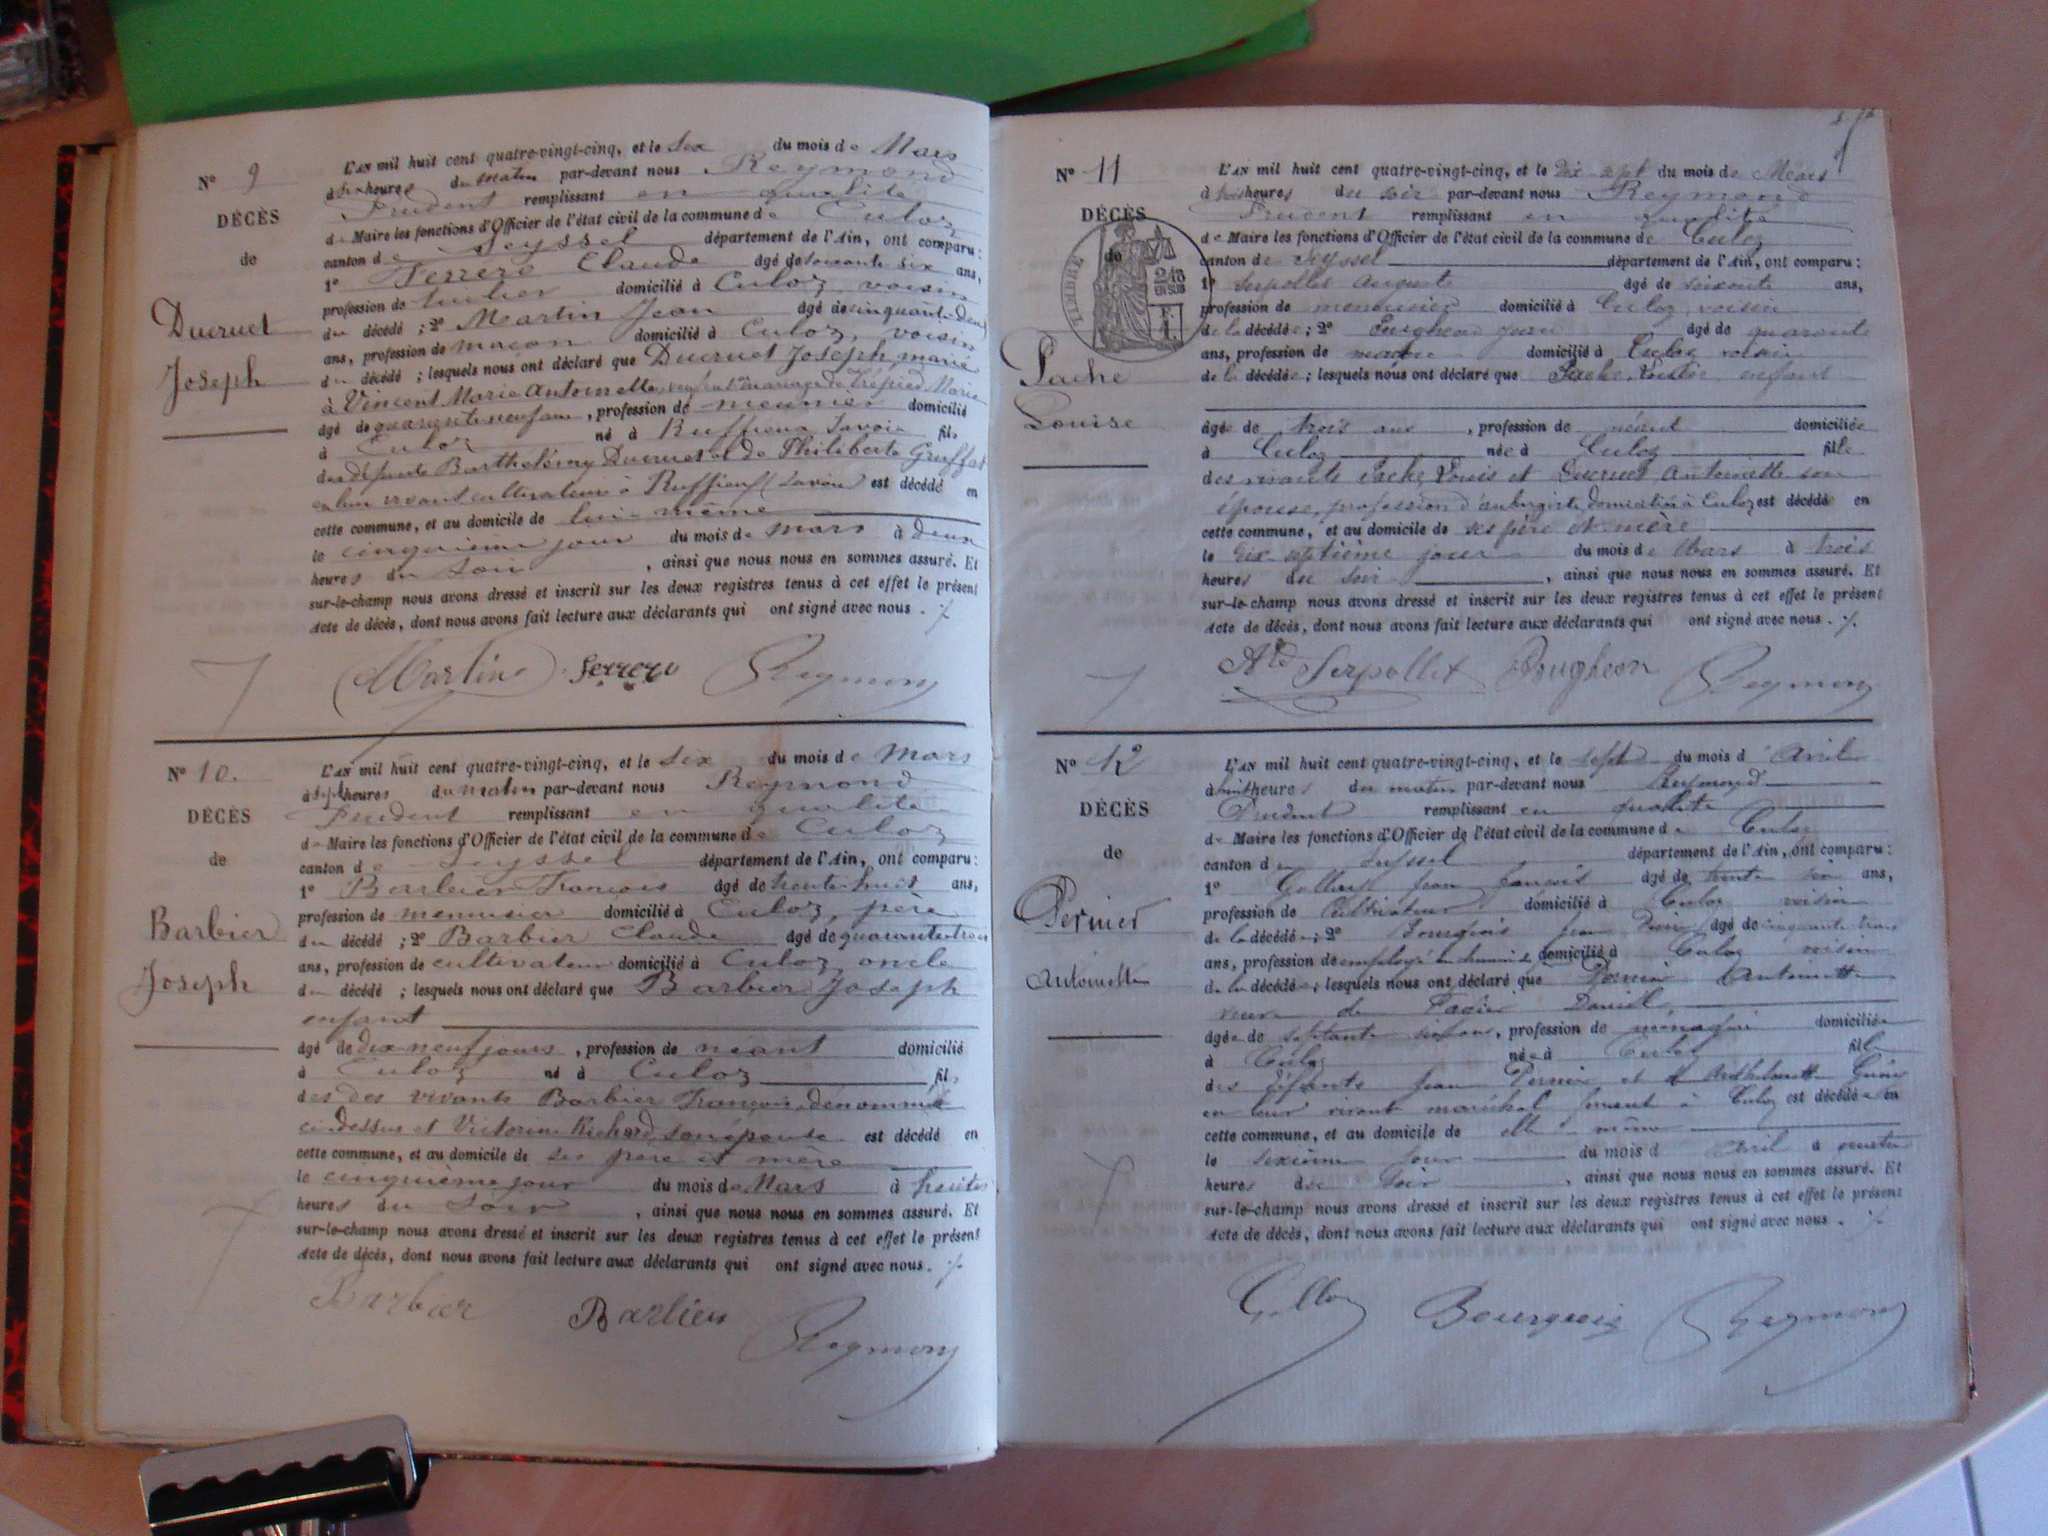 N° 9
DÉCÈS
de
Ducruet
Joseph
L'AN mil huit cent quatre-vingt-cinq, et le Six du mois de Mars
à Six heures du matin par-devant nous Reymond
Prudent remplissant en qualité
de Maire les fonctions d'Officier de l'état civil de la commune de Culoz
canton de Seyssel département de l'Ain, ont comparu:
1° Ferrero Claude âgé de soixante six ans,
profession de domicilié à Culoz, voisin
du décédé; 2° Martin Jean âgé de cinquante-deux
ans, profession de maçon domicilié à Culoz, voisin
du décédé; lesquels nous ont déclaré que Ducruet Joseph marié
à Vincent Marie Antoinette, veuf en 1er mariage de Trépied Marie
âgé de quarante neuf ans, profession de meunier domicilié
à Culoz né à Ruffieux Savoie fils
des défunts Barthélémy Ducruet et de Philiberte Gruffat
en leur vivant cultivateurs à Ruffieux (Savoie) est décédé en
cette commune, et au domicile de lui-même
le cinquième jour du mois de mars à deux
heures du soir, ainsi que nous nous en sommes assuré. Et
sur-le-champ nous avons dressé et inscrit sur les deux registres tenus à cet effet le présent
Acte de décès, dont nous avons fait lecture aux déclarants qui ont signé avec nous. ./.
Martin Ferrero Reymond
N° 10.
DÉCÈS
de
Barbier
Joseph
L'AN mil huit cent quatre-vingt-cinq, et le Six du mois de Mars
à Sept heures du matin par-devant nous Reymond
Prudent remplissant en qualité
de Maire les fonctions d'Officier de l'état civil de la commune de Culoz
canton de Seyssel département de l'Ain, ont comparu:
1° Barbier François âgé de trente-huit ans,
profession de menuisier domicilié à Culoz, père
du décédé; 2° Barbier Claude âgé de quarante-trois
ans, profession de cultivateur domicilié à Culoz, oncle
du décédé; lesquels nous ont déclaré que Barbier Joseph
enfant
âgé de dix-neuf jours, profession de néant domicilié
à Culoz né à Culoz fils
des des vivants Barbier François, dénommé
ci-dessus et Victorine Richard, son épouse est décédé en
cette commune, et au domicile de ses père et mère
le cinquième jour du mois de Mars à
heures du soir, ainsi que nous nous en sommes assuré. Et
sur-le-champ nous avons dressé et inscrit sur les deux registres tenus à cet effet le présent
Acte de décès, dont nous avons fait lecture aux déclarants qui ont signé avec nous. ./.
Barbier Barbier Reymond
N° 11
DÉCÈS
de
TIMBRE
Pache
Louise
L'AN mil huit cent quatre-vingt-cinq, et le Dix-sept du mois de Mars
à heures du soir par-devant nous Reymond
Prudent remplissant en qualité
de Maire les fonctions d'Officier de l'état civil de la commune de Culoz
canton de Seyssel département de l'Ain, ont comparu:
1° Serpollet Auguste âgé de soixante ans,
profession de menuisier domicilié à Culoz, voisin
de la décédée; 2° Pugheon Jean âgé de quarante
ans, profession de domicilié à Culoz voisin
de la décédée; lesquels nous ont déclaré que Pache Louise, enfant
âgée de trois ans, profession de néant domiciliée
à Culoz née à Culoz fille
des vivants Pache Louis et Ducruet Antoinette son
épouse, profession d'aubergiste domiciliés à Culoz est décédée en
cette commune, et au domicile de ses père et mère
le Dix-septième jour du mois de Mars à trois
heures du soir, ainsi que nous nous en sommes assuré. Et
sur-le-champ nous avons dressé et inscrit sur les deux registres tenus à cet effet le présent
Acte de décès, dont nous avons fait lecture aux déclarants qui ont signé avec nous. ./.
Serpollet Pugheon Reymond
N° 12
DÉCÈS
de
Pernier
Antoinette
L'AN mil huit cent quatre-vingt-cinq, et le sept du mois d'Avril
à huit heures du matin par-devant nous Reymond
Prudent remplissant en qualité
de Maire les fonctions d'Officier de l'état civil de la commune de Culoz
canton de Seyssel département de l'Ain, ont comparu:
1° Jean François âgé de trente six ans,
profession de Cultivateur domicilié à Culoz voisin
de la décédée; 2° Bourgeois Jean Pierre âgé de cinquante trois
ans, profession de employé domicilié à Culoz voisin
de la décédée; lesquels nous ont déclaré que Pernier Antoinette
veuve de Daniel,
âgée de septante, profession de ménagère domiciliée
à Culoz née à Culoz fille
des défunts Jean Pernier et
en leur vivant maréchal ferrant à Culoz est décédée en
cette commune, et au domicile de elle même
le sixième jour du mois d'Avril à
heures du soir, ainsi que nous nous en sommes assuré. Et
sur-le-champ nous avons dressé et inscrit sur les deux registres tenus à cet effet le présent
Acte de décès, dont nous avons fait lecture aux déclarants qui ont signé avec nous. ./.
Bourgeois Reymond